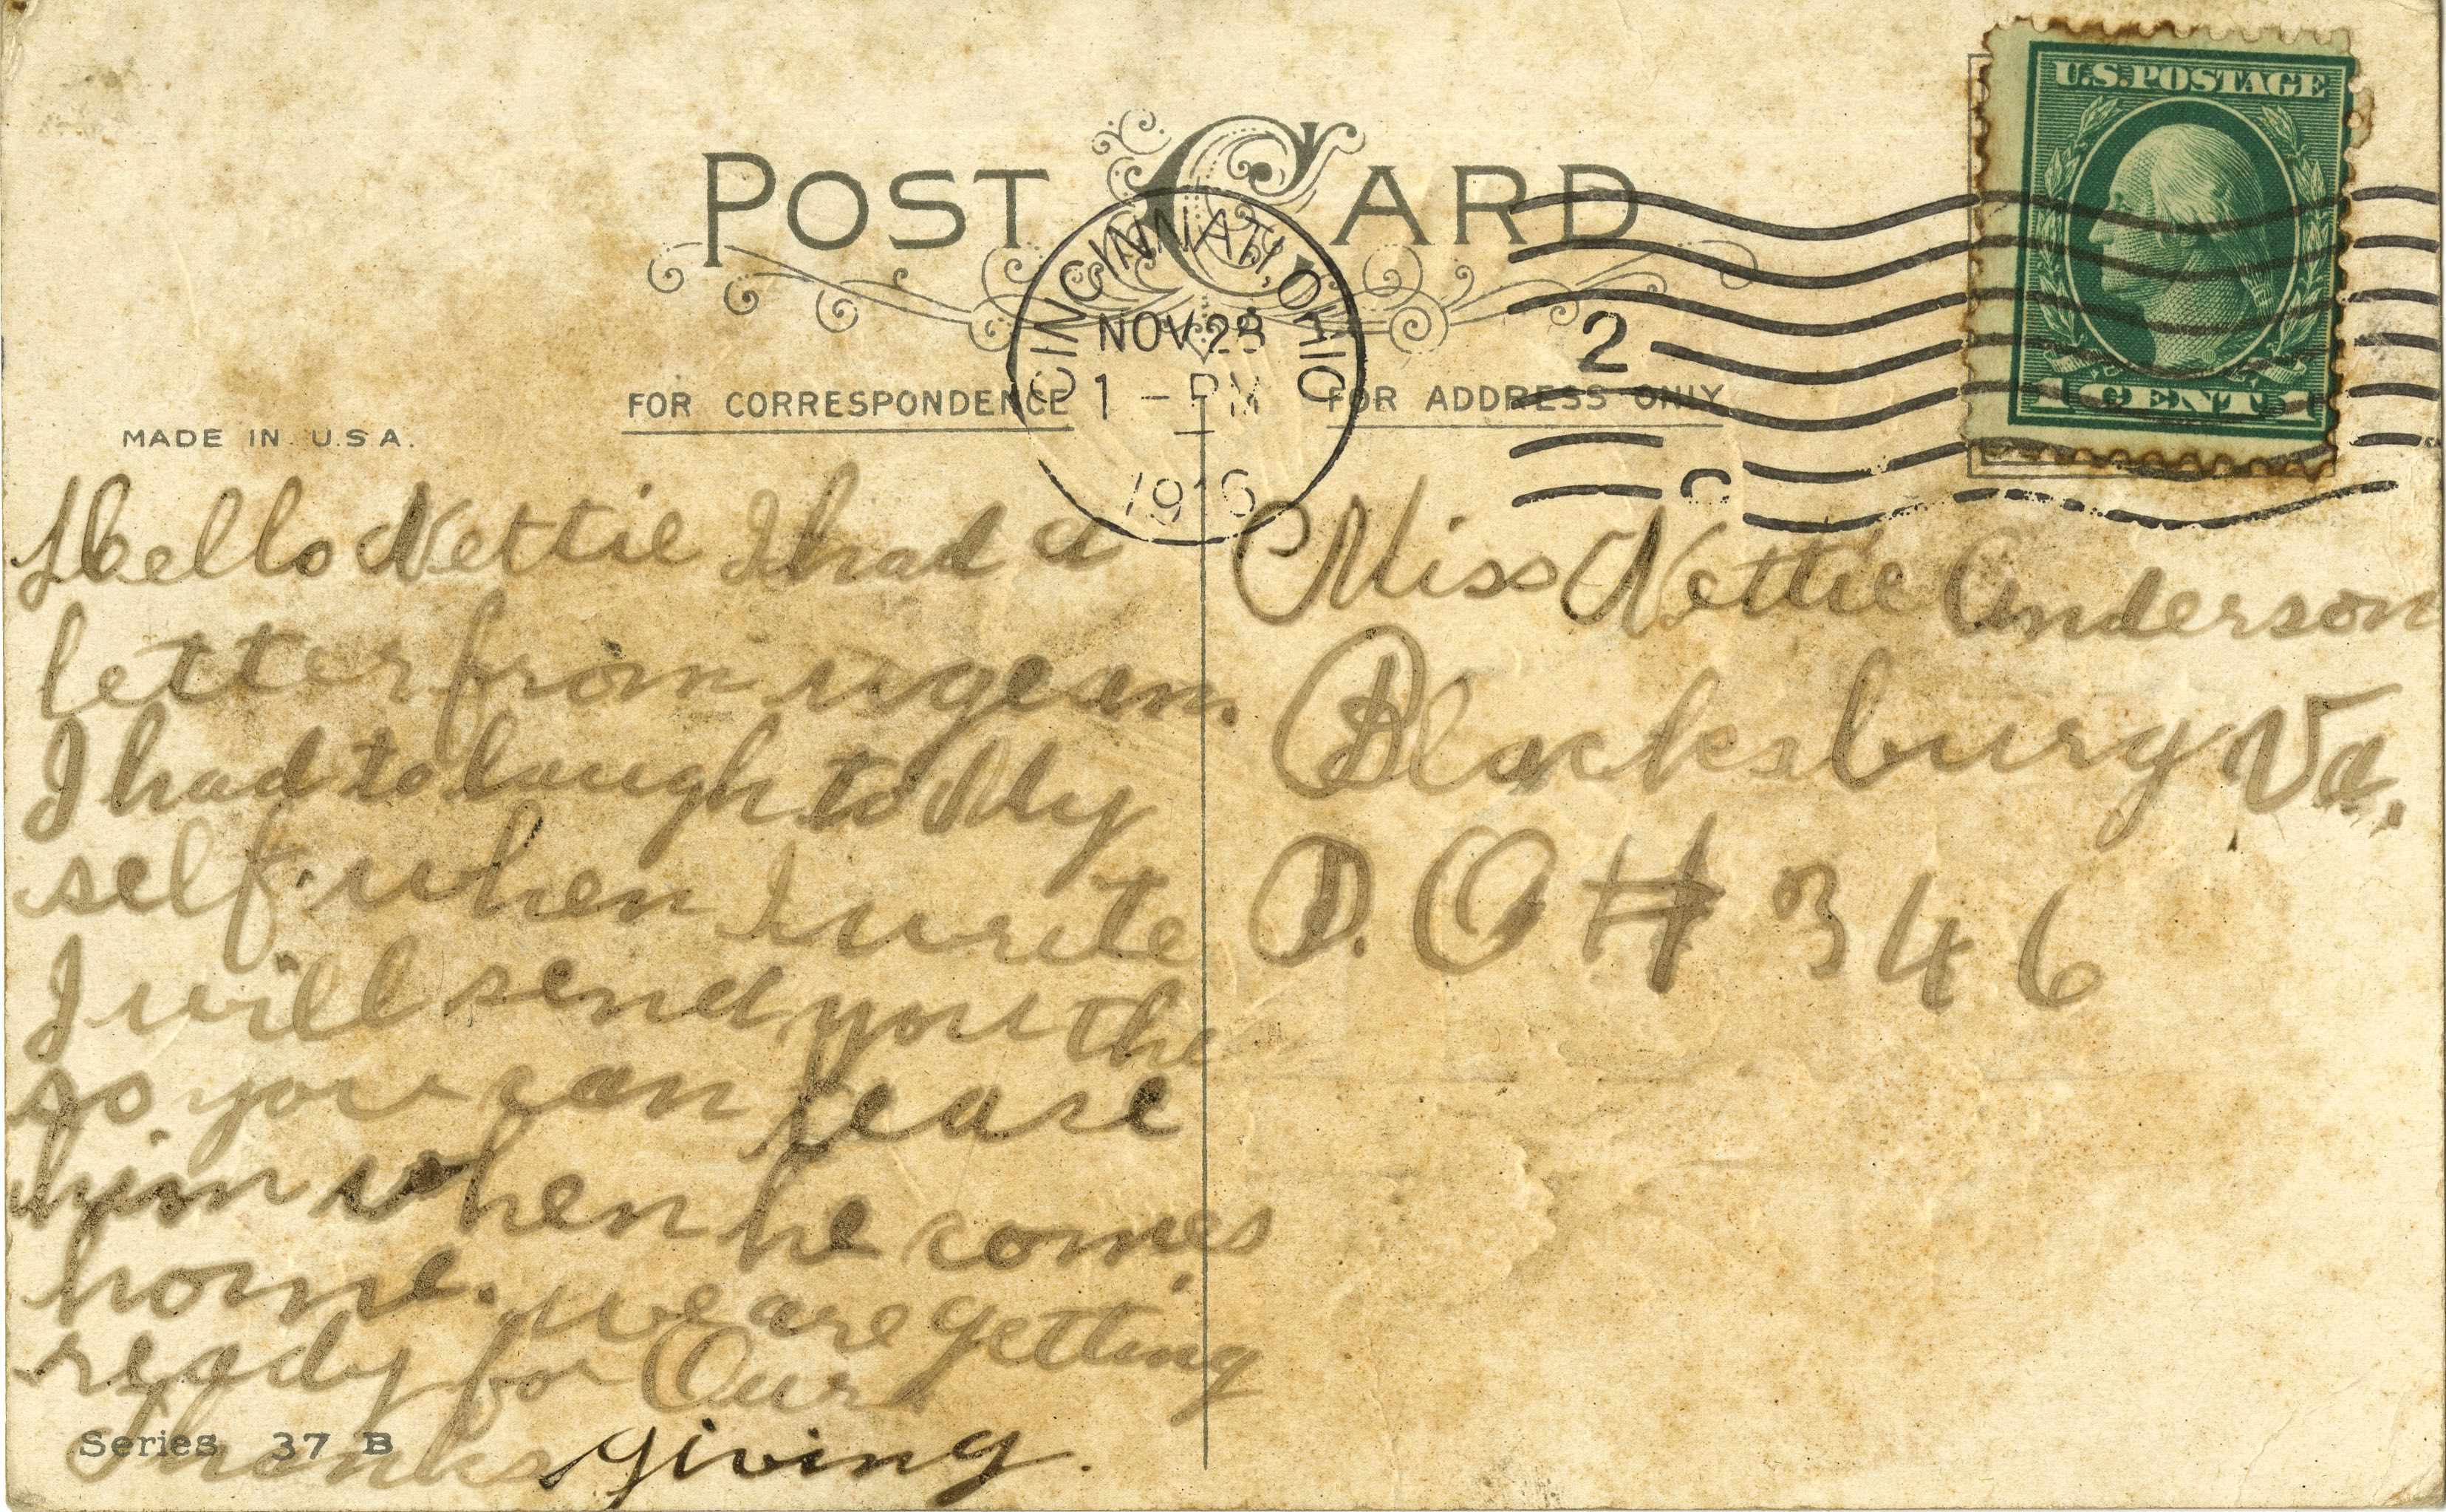 U.S. POSTAGE
1 CENT 1
POST CARD
CINCINNATI, OHIO
NOV 28
1 - PM
1916
2
FOR CORRESPONDENCE
FOR ADDRESS ONLY
MADE IN U.S.A.
Hello Nettie I had a
letter from
I had to laugh to My
self. when I write
I will send you the
so you can tease
him when he comes
home. we are getting
ready for Our
Thanks giving.
Series 37 B
Miss Nettie Anderson
Blacksburg Va.
P. O # 346